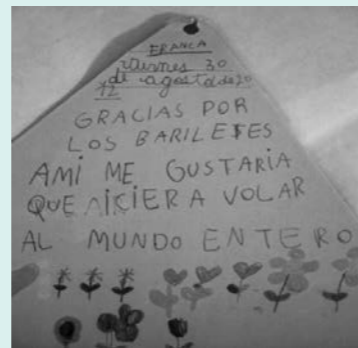 FRANCA
viernes 30
de agosto de 20
12
GRACIAS POR
LOS BARILETES
AMI ME GUSTARIA
QUE AICIERA VOLAR
AL MUNDO ENTERO